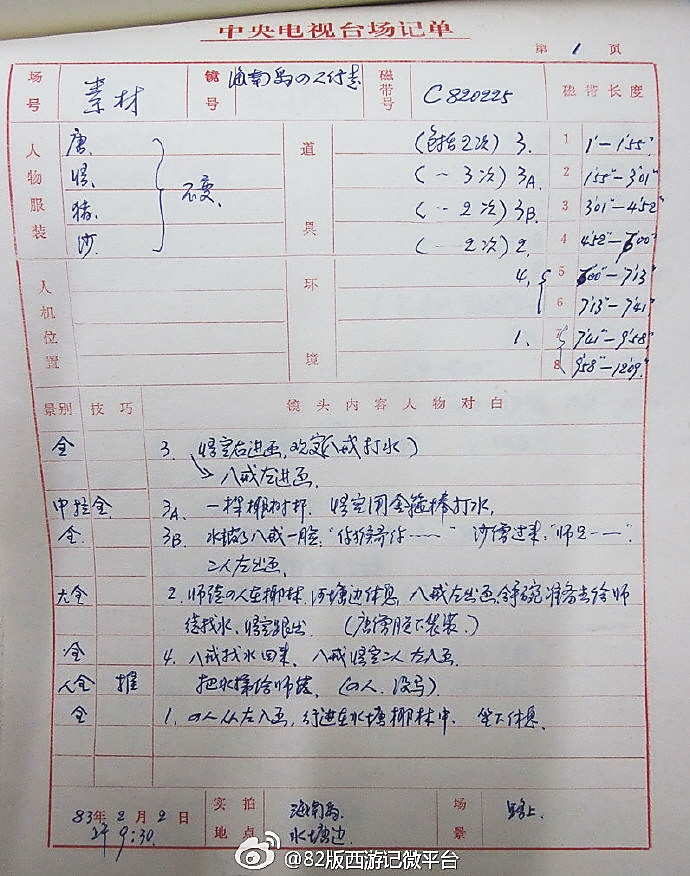 中央电视台场记单
第 1 页
场号 素材 镜号 海南岛の人行走 磁带号 C820225 磁带长度
人物服装 唐. 悟. 猪. 沙. 不变. 道具
(包括2次) 3. 1 1'—1'55"
(〃 3次) 3A 2 1'55"—3'01"
(〃 2次) 3B 3 3'01"—4'52"
(〃 2次) 2. 4 4'52"—6'00"
人机位置 环境 4. 5 6'00"—7'13"
6 7'13"—7'41"
1. 7 7'41"—9'58"
8 9'58"—12'09"
景别 技巧 镜头内容人物对白
全 3. 悟空右进画, 八戒打水)
八戒左进画.
中拉全 3A. 一棵椰树, 悟空用金箍棒打水,
全 3B. 水八戒一脸. "你猴哥你……" 沙僧过来, "师兄——"
二人左出画.
大全 2. 师徒の人在椰林. 河塘边休息, 八戒左出画, 拿碗准备去给师
傅找水. 悟空跟出. (唐僧脱下袈裟.)
全 4. 八戒找水回来, 八戒悟空二人左入画.
人全 摇 把水捧给师傅. (の人. 没马).
全 1. の人从左入画, 行进在水塘椰林中. 坐下休息.
83年 2月 2日
9:30.
实拍地点 海南岛. 水塘边
场景 路上.
@82版西游记微平台